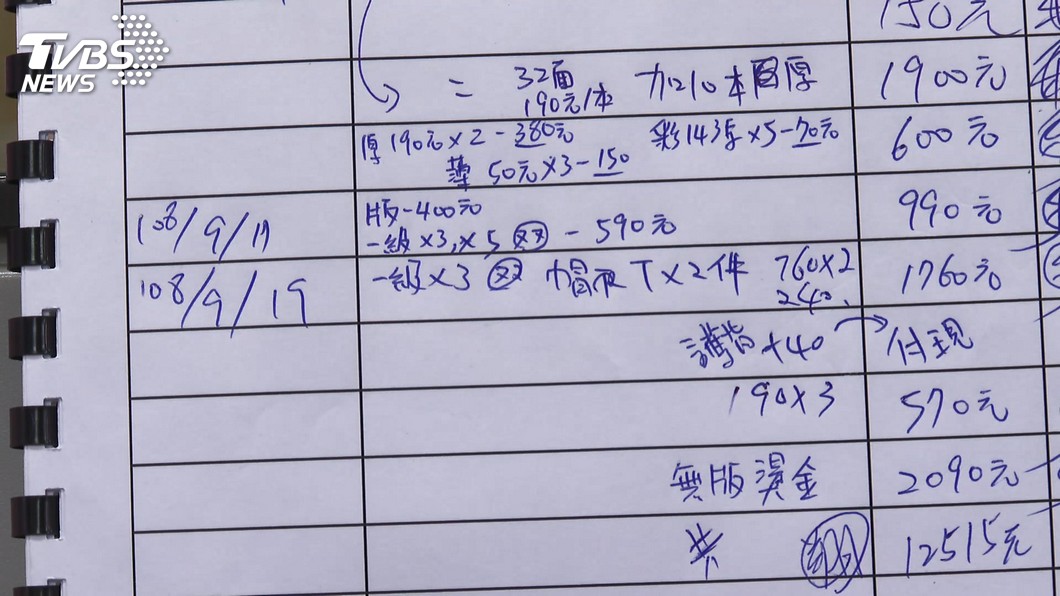 TVBS
NEWS
150元
= 32面
190元/本 加10本 厚 1900元
厚 190元×2-380元 彩143張×5-70元 600元
薄 50元×3-150
版-400元 990元
108/9/17 一級×3,×5 - 590元
108/9/19 一級×3 帽T×2件 760×2 1760元
240.
+40 付現
190×3 570元
無版燙金 2090元
共 12515元